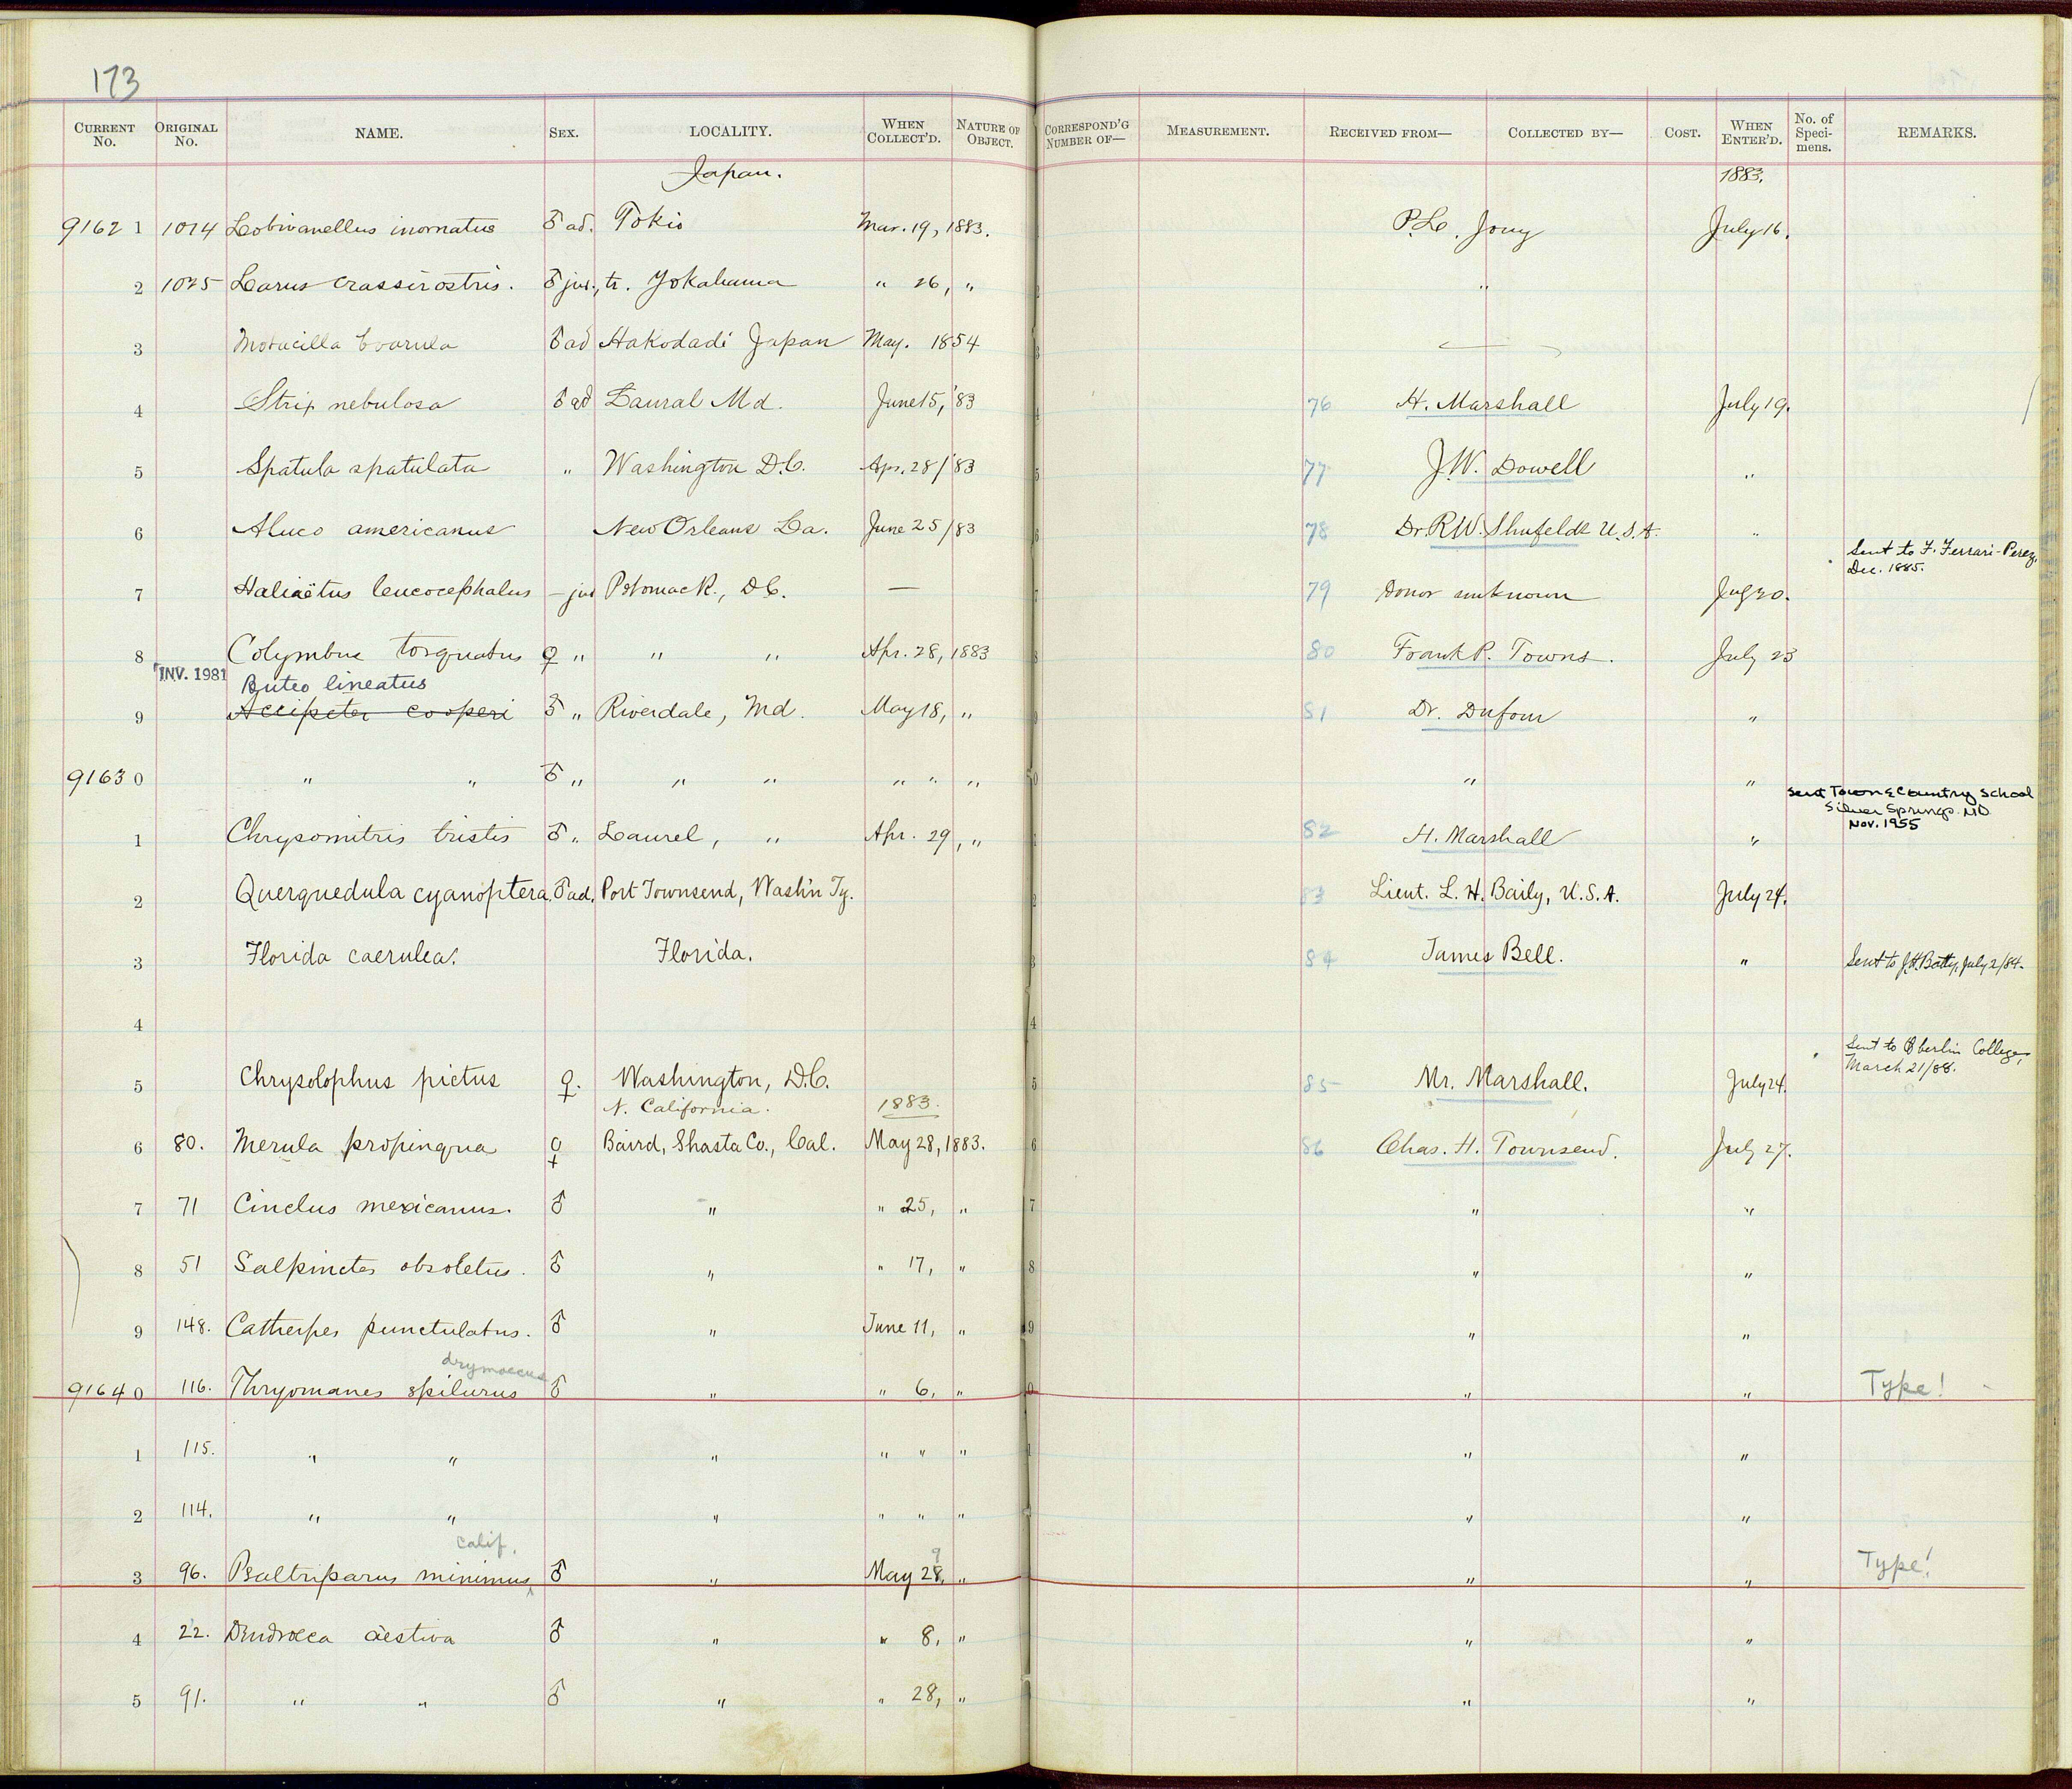 173
CURRENT No. ORIGINAL No. NAME. SEX. LOCALITY. WHEN COLLECT'D. NATURE OF OBJECT. CORRESPOND'G NUMBER OF— MEASUREMENT. RECEIVED FROM— COLLECTED BY— COST. WHEN ENTER'D. No. of Speci-mens. REMARKS.
Japan. 1883.
9162 1 1014 Lobivanellus inornatus ♂ ad. Tokio Mar. 19, 1883. P.L. Jouy July 16.
2 1025 Larus crassirostris. ♂ juv., tr. Yokahama " 26, " "
3 Motacilla boarula ♂ ad Hakodadi Japan May. 1854
4 Strix nebulosa ♂ ad Laural Md. June 15, '83 76 H. Marshall July 19.
5 Spatula spatulata " Washington D.C. Apr. 28/'83 77 J.W. Dowell "
6 Aluco americanus New Orleans La. June 25/83 78 Dr. R.W. Shufeldt U.S.A. "
Sent to F. Ferrari-Perez,
Dec. 1885.
7 Haliaëtus leucocephalus — juv Potomac R., D.C. — 79 Donor unknown July 20.
8 Colymbus torquatus ♀ " " " Apr. 28, 1883 80 Frank P. Towns. July 23
INV. 1981 Buteo lineatus
9 Accipeter cooperi ♂ " Riverdale, Md. May 18, " 81 Dr. Dufour "
9163 0 " " ♂ " " " " " " " "
Sent Town & Country School
Silver Springs. MD
Nov. 1955
1 Chrysomitris tristis ♂ " Laurel, " Apr. 29, " 82 H. Marshall "
2 Querquedula cyanoptera. ♂ ad. Port Townsend, Wash'n Ty. 83 Lieut. L. H. Baily, U.S.A. July 24.
3 Florida caerulea. Florida. 84 James Bell. " Sent to J.H. Batty, July 2/84.
4
Sent to Oberlin College,
March 21/88.
5 Chrysolophus pictus ♀. Washington, D.C. 85 Mr. Marshall. July 24.
N. California. 1883.
6 80. Merula propinqua ♀ Baird, Shasta Co., Cal. May 28, 1883. 86 Chas. H. Townsend. July 27.
7 71 Cinclus mexicanus. ♂ " " 25, " " "
8 51 Salpinctes obsoletus. ♂ " " 17, " " "
9 148. Catherpes punctulatus. ♂ " June 11, " " "
drymoecus
9164 0 116. Thryomanes spilurus ♂ " " 6, " " " Type!
1 115. " " " " " " " "
2 114. " " " " " " " "
calif. 9
3 96. Psaltriparus minimus ♂ " May 28, " " " Type!
4 22. Dendroeca aestiva ♂ " " 8, " " "
5 91. " " ♂ " " 28, " " "